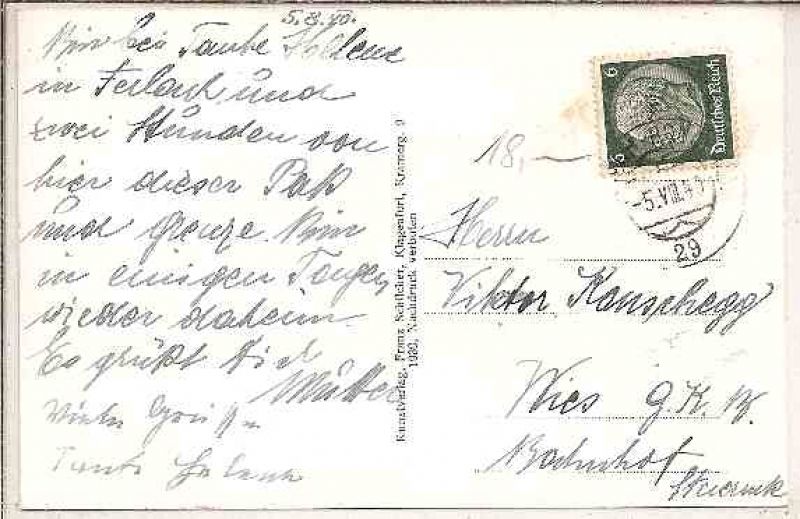 5.8.40.
Bin bei Tante
in Ferlach und
zwei Stunden von
hier dieser Paß
und Grenze. Bin
in einigen Tagen
wieder daheim.
Es grüßt Dich
Mutter
Viele Grüße
Tante
Kunstverlag, Franz Schilcher, Klagenfurt, Kramerg. 9
Nachdruck verboten
6
6
Deutsches Reich
-5.VIII.4
29
18,—
Herrn
Viktor Kanschegg
Wies G.K.B.
Bahnhof